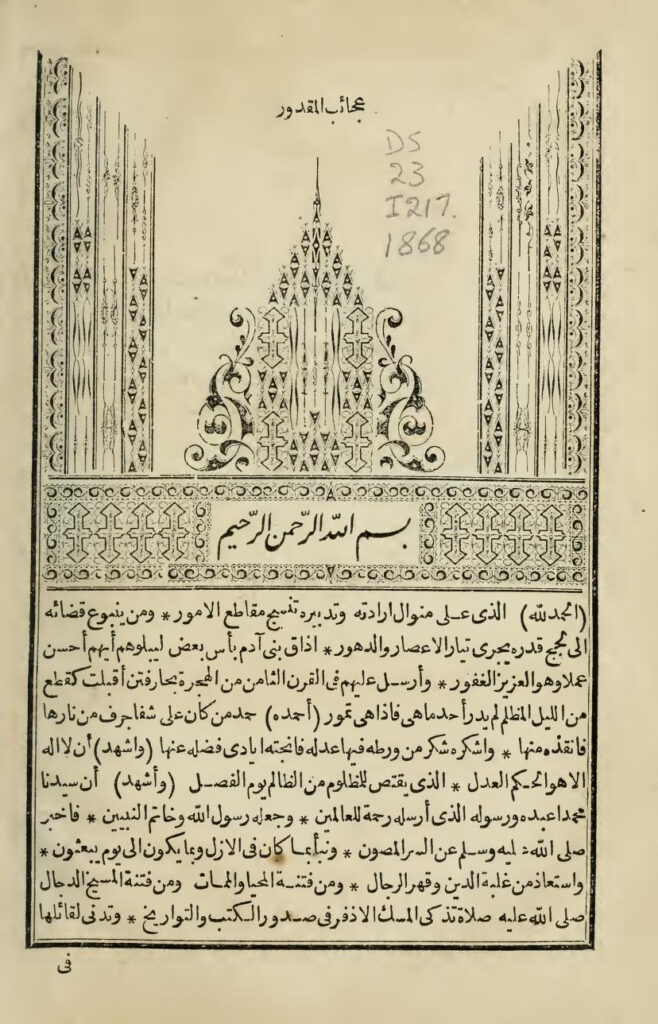 عجائب المقدور
DS
23
I217.
1868
بسم الله الرّحمن الرّحيم
(الحمد لله) الذى على منوال ارادته وتدبيره تنسج مقاطع الامور * ومن ينبوع قضائه
الى لجج قدره يجرى تيار الاعصار والدهور * اذاق بنى آدم بأس بعض ليبلوهم أيهم أحسن
عملا وهو العزيز الغفور * وأرسل عليهم فى القرن الثامن من الهجرة بحار فتن أقبلت كقطع
من الليل المظلم لم يدر أحد ماهى فاذا هى تمور (أحمده) حمد من كان على شفا جرف من نارها
فانقذه منها * واشكره شكر من ورطه فيها عدله فانجته ايادى فضله عنها (واشهد) أن لا اله
الا هو الحكم العدل * الذى يقتص للمظلوم من الظالم يوم الفصل (وأشهد) أن سيدنا
محمدا عبده ورسوله الذى أرسله رحمة للعالمين * وجعله رسول الله وخاتم النبيين * فاخبر
صلى الله عليه وسلم عن السر المصون * ونبأ بما كان فى الازل وبما يكون الى يوم يبعثون *
واستعاذ من غلبة الدين وقهر الرجال * ومن فتنة المحيا والممات ومن فتنة المسيح الدجال
صلى الله عليه صلاة تذكى المسك الاذفر فى صدور الكتب والتواريخ * وتدنى لقائلها
فى